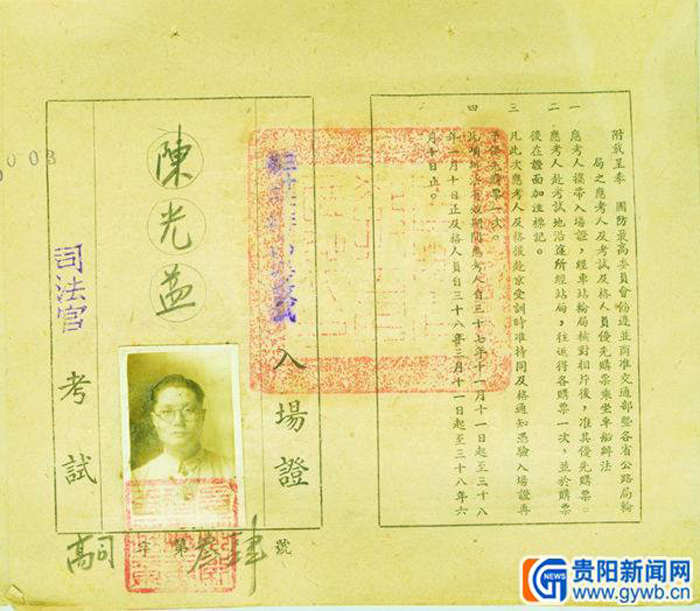 附載呈奉 國防最高委員會飭遵並商准交通部暨各省公路局輪
局之應考人及考試及格人員優先購票乘坐車船辦法
一 應考人攜帶入場證，經車站輪局核對相片後，准其優先購票。
二 應考人赴考試地沿途所經站局，往返得各購票一次，並於購票
後在證面加注標記。
三 凡此次應考人及格後赴京受訓時准持同及格通知憑驗入場證再
予優先購票一次。
四 此項辦法有效期間應考人自三十七年十一月十一日起至三十八
年一月十日止及格人員自三十八年三月十一日起至三十八年六
月十日止。
入場證
陳光益
司法官考試
高司字第叁肆號
0003
G NEWS
贵阳新闻网
www.gywb.cn